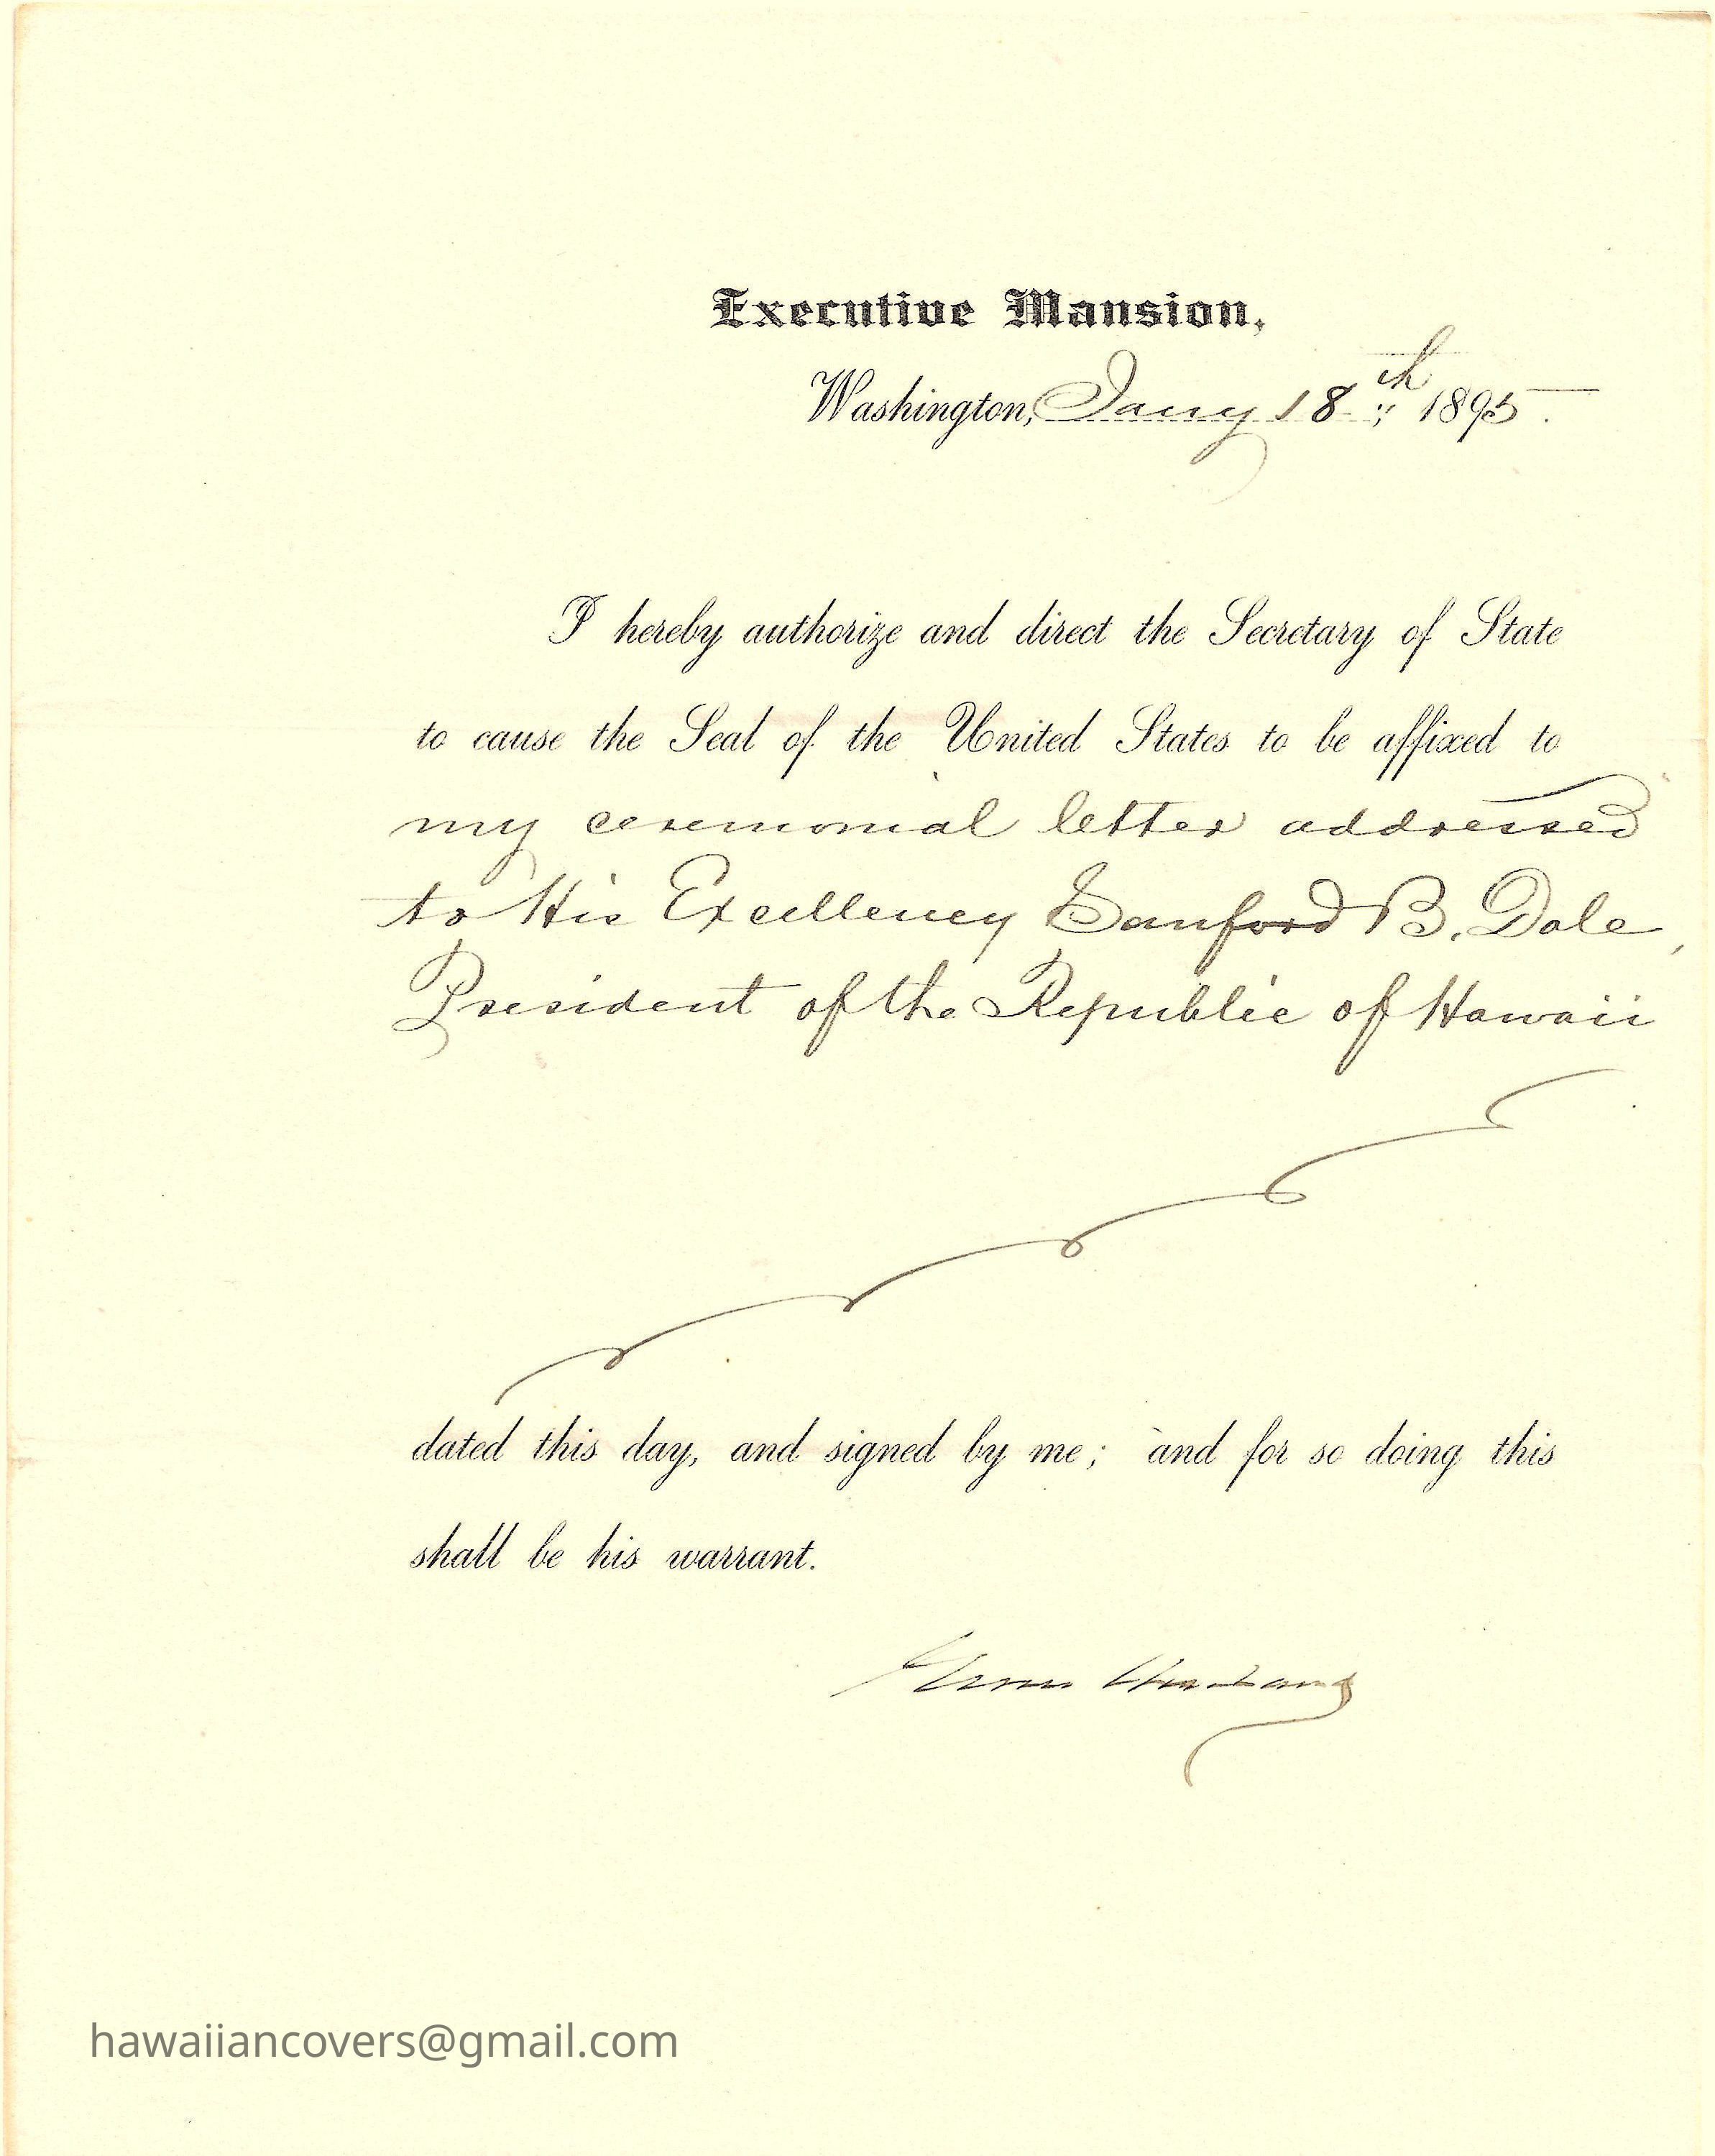 Executive Mansion,
Washington, Jany 18th, 1895.
I hereby authorize and direct the Secretary of State
to cause the Seal of the United States to be affixed to
my ceremonial letter addressed
to His Excellency Sanford B. Dole,
President of the Republic of Hawaii
dated this day, and signed by me; and for so doing this
shall be his warrant.
Grover Cleveland
hawaiiancovers@gmail.com